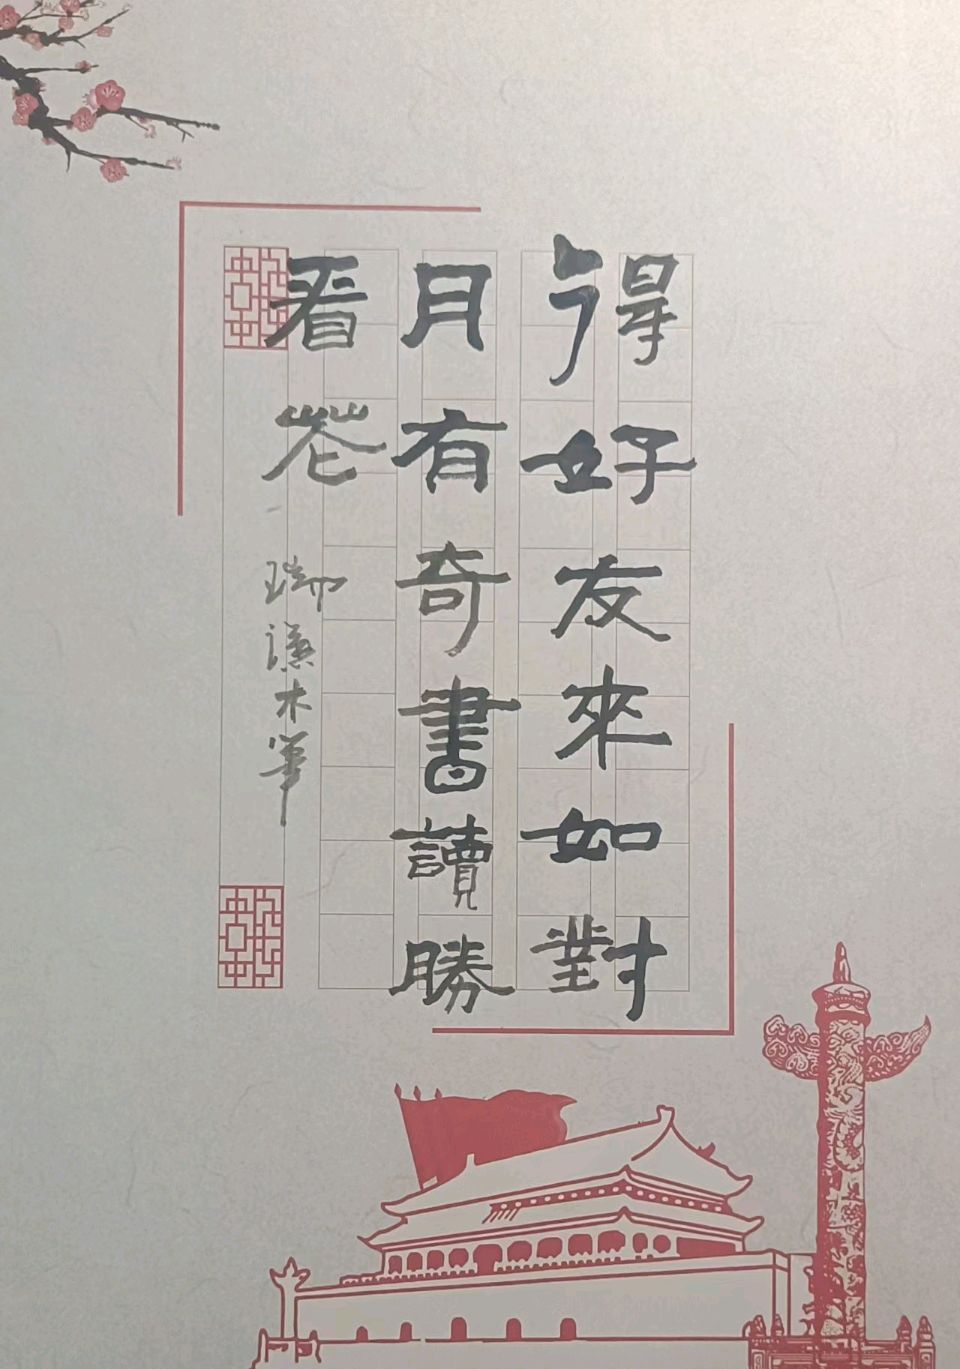 得好友來如對
月有奇書讀勝
看花
瑞謙木筆